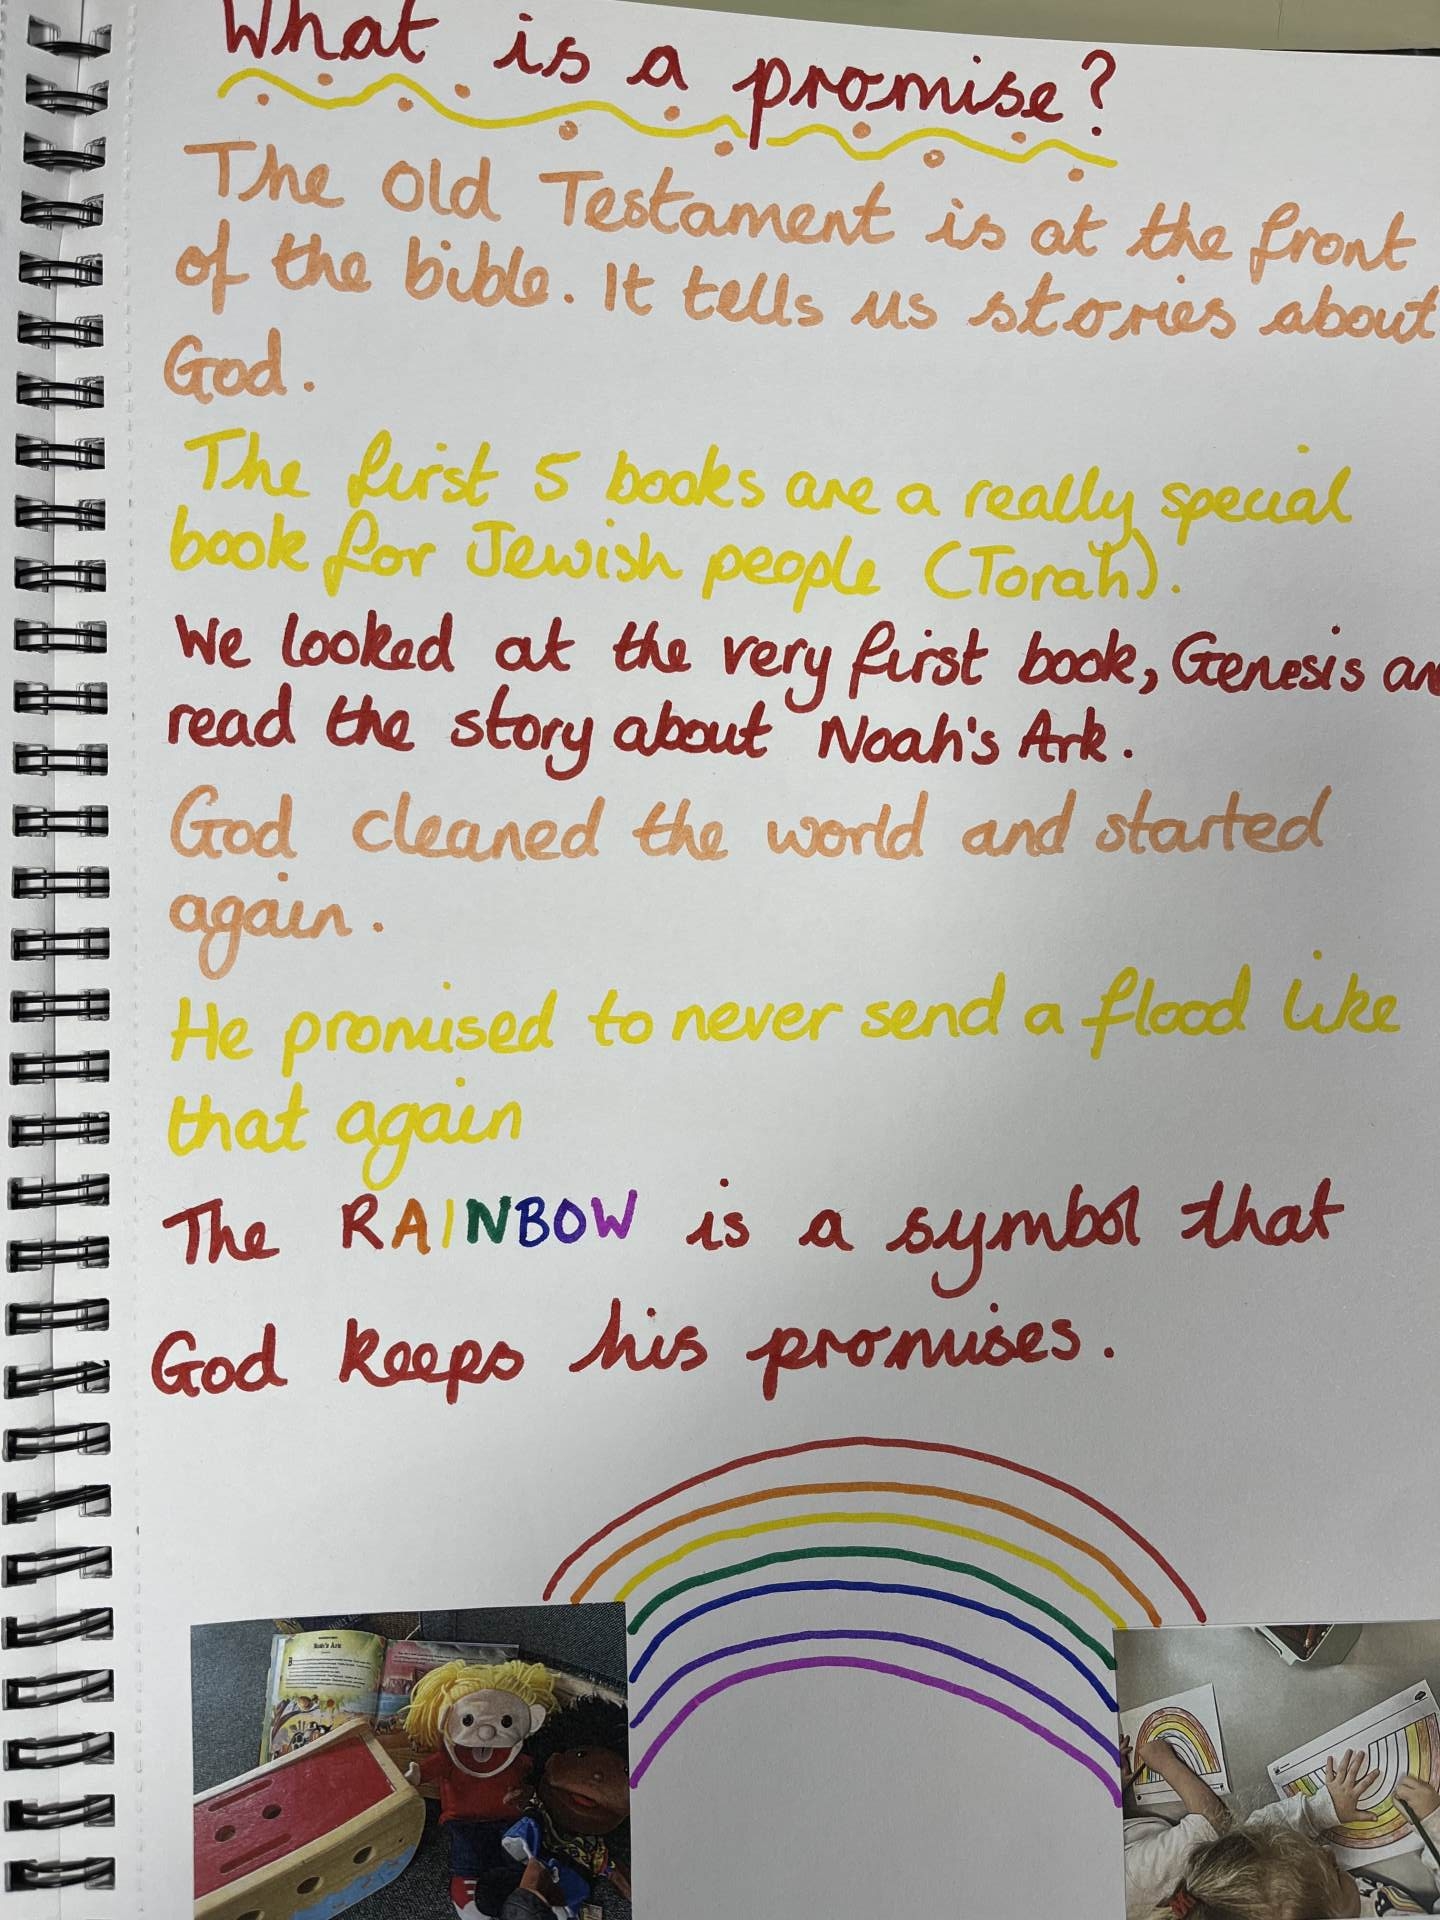 What is a promise?
The Old Testament is at the front
of the bible. It tells us stories about
God.
The first 5 books are a really special
book for Jewish people (Torah).
We looked at the very first book, Genesis an
read the story about Noah's Ark.
God cleaned the world and started
again.
He promised to never send a flood like
that again
The RAINBOW is a symbol that
God keeps his promises.
Noah's Ark